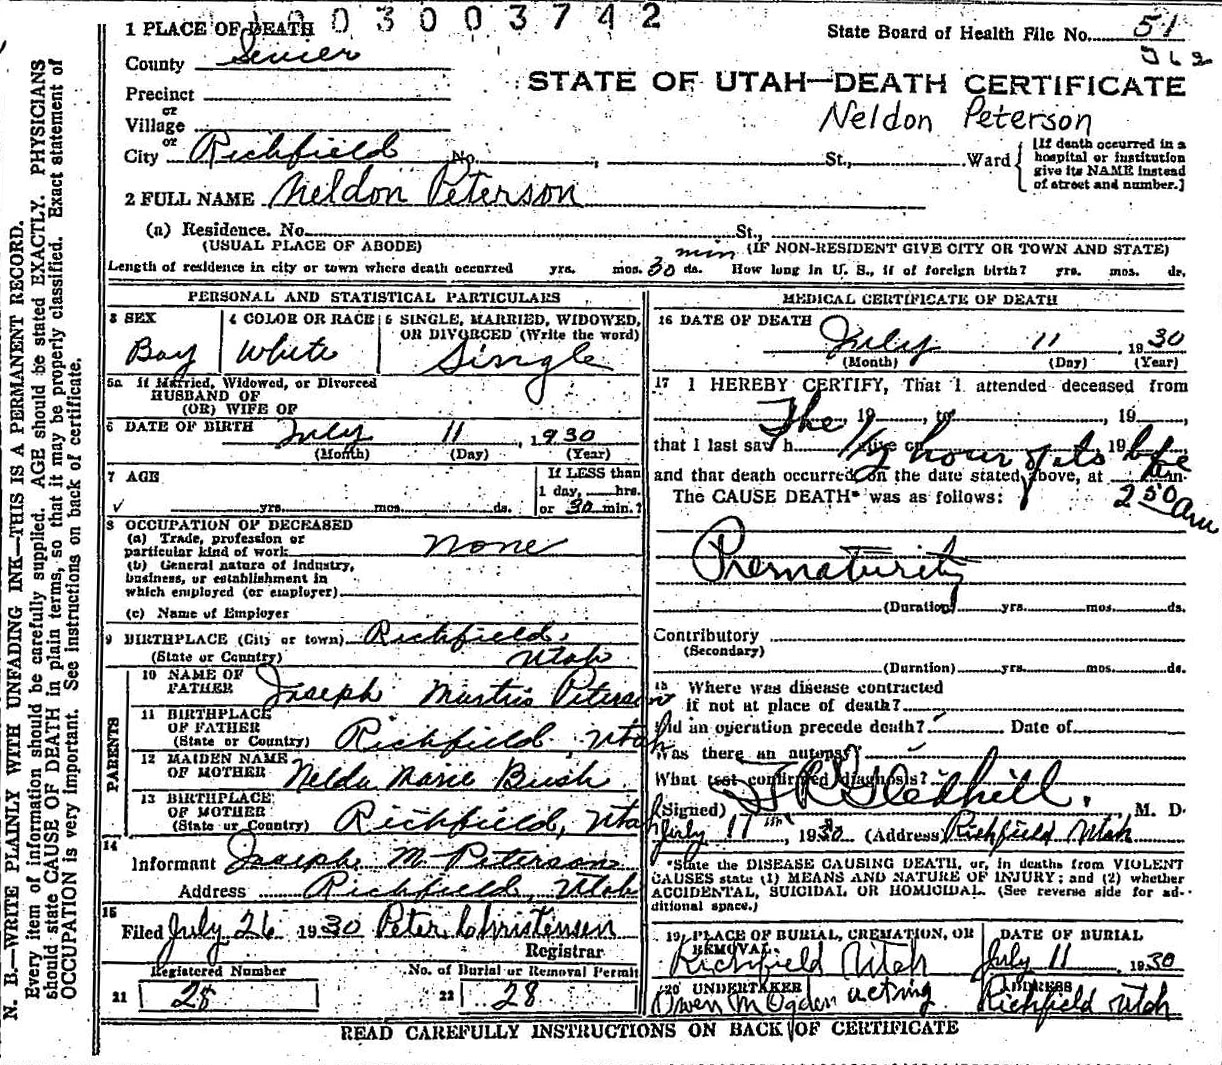 1003003742
1 PLACE OF DEATH
State Board of Health File No. 51
County Sevier
STATE OF UTAH—DEATH CERTIFICATE
Precinct
or
Village
Neldon Peterson
or
City Richfield No. , St., Ward {[If death occurred in a hospital or institution give its NAME instead of street and number.]
2 FULL NAME Neldon Peterson
(a) Residence. No. St.,
(USUAL PLACE OF ABODE) (IF NON-RESIDENT GIVE CITY OR TOWN AND STATE)
min
Length of residence in city or town where death occurred yrs. mos. 30 ds. How long in U. S., if of foreign birth? yrs. mos. ds.
PERSONAL AND STATISTICAL PARTICULARS
3 SEX
Boy
4 COLOR OR RACE
White
5 SINGLE, MARRIED, WIDOWED,
OR DIVORCED (Write the word)
Single
5a If Married, Widowed, or Divorced
HUSBAND OF
(OR) WIFE OF
6 DATE OF BIRTH July 11, 1930
(Month) (Day) (Year)
7 AGE
yrs. mos. ds.
If LESS than
1 day, hrs.
or 30 min.?
8 OCCUPATION OF DECEASED
(a) Trade, profession or
particular kind of work None
(b) General nature of industry,
business, or establishment in
which employed (or employer)
(c) Name of Employer
9 BIRTHPLACE (City or town) Richfield,
(State or Country) Utah
PARENTS
10 NAME OF
FATHER Joseph Peterson
11 BIRTHPLACE
OF FATHER
(State or Country) Richfield, Utah
12 MAIDEN NAME
OF MOTHER Nelda Marie Bush
13 BIRTHPLACE
OF MOTHER
(State or Country) Richfield, Utah
14
Informant Joseph M Peterson
Address Richfield, Utah
15
Filed July 26 1930 Peter Christensen
Registrar
Registered Number
21 28
No. of Burial or Removal Permit
22 28
MEDICAL CERTIFICATE OF DEATH
16 DATE OF DEATH
July 11 1930
(Month) (Day) (Year)
17 I HEREBY CERTIFY, That I attended deceased from
The , 19 , to , 19
that I last saw h alive on 19
1/2 hour of its life
and that death occurred on the date stated above, at m.
The CAUSE DEATH* was as follows: 2 50 am
Prematurity
(Duration) yrs. mos. ds.
Contributory
(Secondary)
(Duration) yrs. mos. ds.
18 Where was disease contracted
if not at place of death?
Did an operation precede death? Date of
Was there an autopsy?
What test confirmed diagnosis?
(Signed) Gledhill, M. D.
July 11 , 1930 (Address) Richfield Utah
*State the DISEASE CAUSING DEATH, or, in deaths from VIOLENT
CAUSES state (1) MEANS AND NATURE OF INJURY; and (2) whether
ACCIDENTAL, SUICIDAL OR HOMICIDAL. (See reverse side for ad-
ditional space.)
19 PLACE OF BURIAL, CREMATION, OR
REMOVAL
Richfield Utah
DATE OF BURIAL
July 11 1930
20 UNDERTAKER
Owen M Ogden acting
ADDRESS
Richfield Utah
READ CAREFULLY INSTRUCTIONS ON BACK OF CERTIFICATE
N. B.—WRITE PLAINLY WITH UNFADING INK—THIS IS A PERMANENT RECORD.
Every item of information should be carefully supplied. AGE should be stated EXACTLY. PHYSICIANS
should state CAUSE OF DEATH in plain terms, so that it may be properly classified. Exact statement of
OCCUPATION is very important. See instructions on back of certificate.